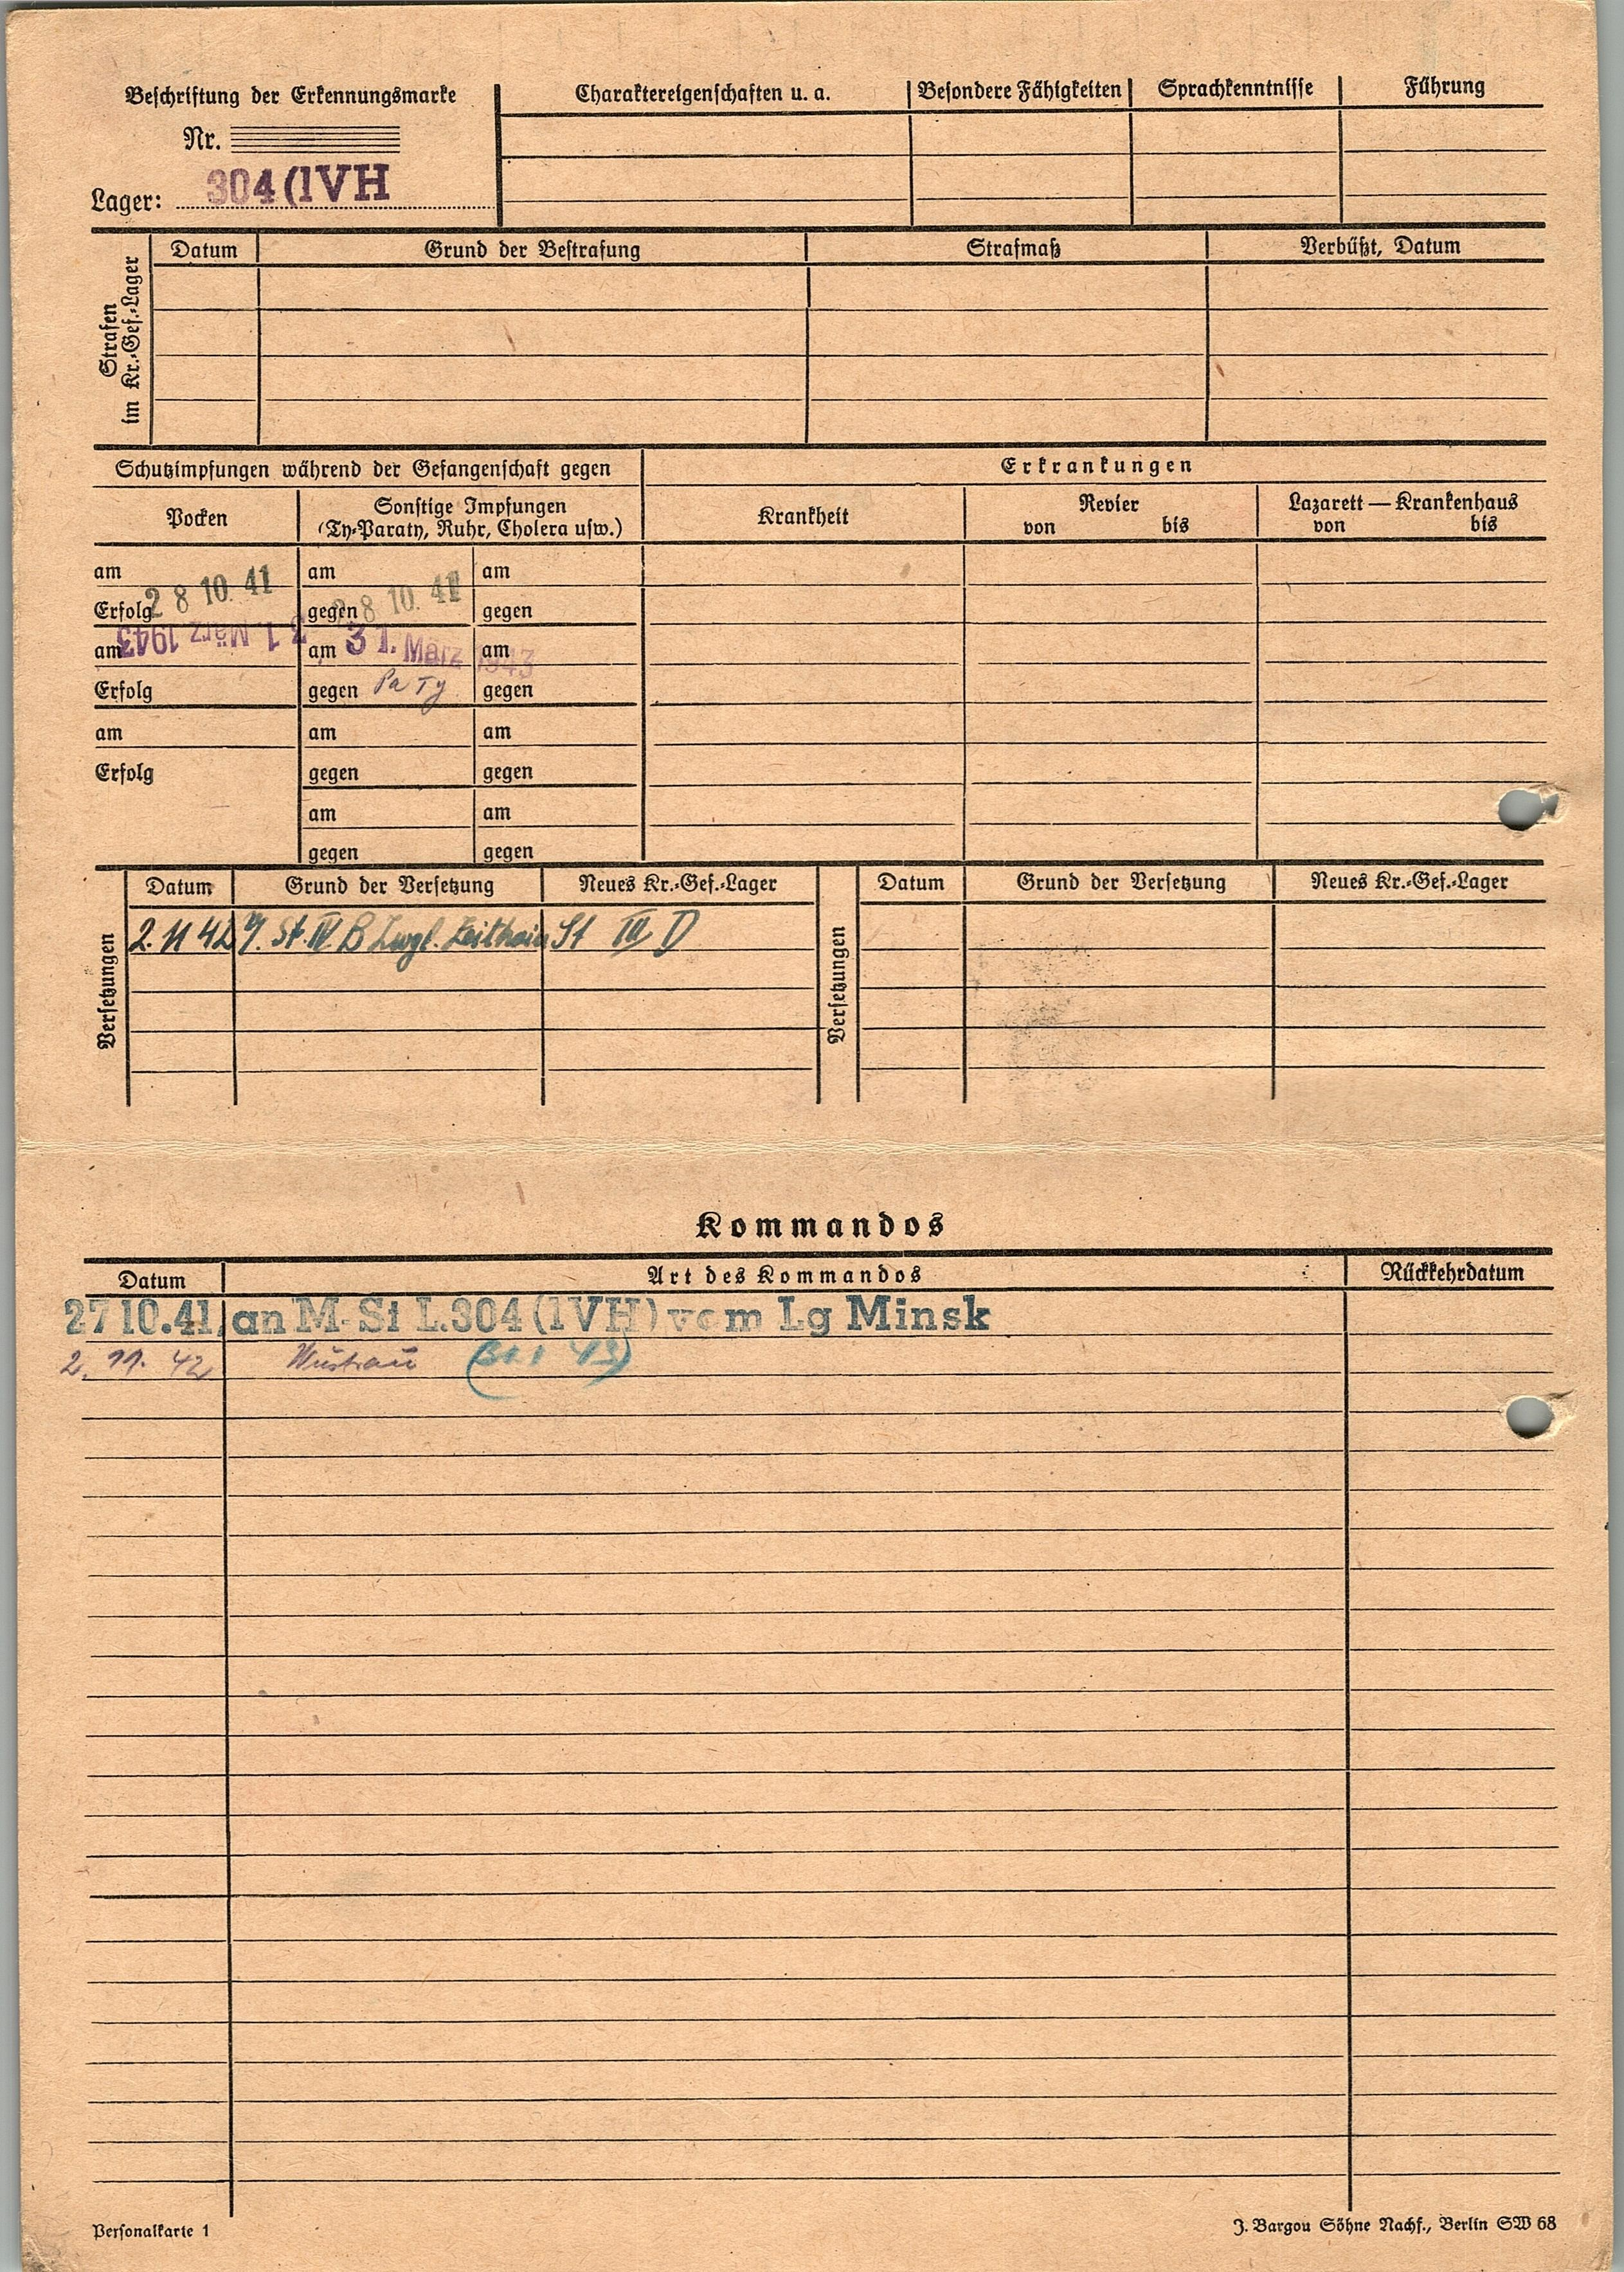 Beschriftung der Erkennungsmarke
Nr.
Lager: 304 (IVH
Charaktereigenschaften u. a. Besondere Fähigkeiten Sprachkenntnisse Führung
Strafen im Kr.-Gef.-Lager
Datum Grund der Bestrafung Strafmaß Verbüßt, Datum
Schutzimpfungen während der Gefangenschaft gegen Erkrankungen
Pocken
Sonstige Impfungen
(Ty-Paraty, Ruhr, Cholera usw.)
Krankheit
Revier
von bis
Lazarett — Krankenhaus
von bis
am am am
28 10. 41 28 10. 41
Erfolg gegen gegen
am 31. März 1943 am 31. März 1943 am
Erfolg gegen Pa Ty gegen
am am am
Erfolg gegen gegen
am am
gegen gegen
Versetzungen
Datum Grund der Versetzung Neues Kr.-Gef.-Lager
2. 11 42 St. IV B Zwgl. Zeithain St III D
Versetzungen
Datum Grund der Versetzung Neues Kr.-Gef.-Lager
Kommandos
Datum Art des Kommandos Rückkehrdatum
27 10.41. an M-St L.304 (IVH) vom Lg Minsk
2. 11. 42 Wustrau
Personalkarte 1
J. Bargou Söhne Nachf., Berlin SW 68